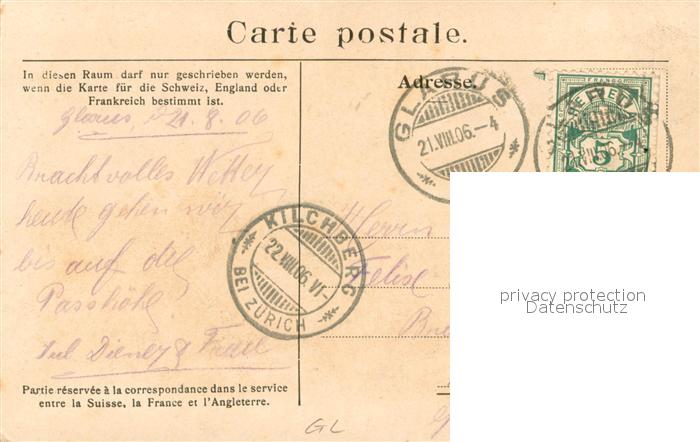 Carte postale.
In diesen Raum darf nur geschrieben werden,
wenn die Karte für die Schweiz, England oder
Frankreich bestimmt ist.
Adresse.
Glarus, 21. 8. 06
Prachtvolles Wetter
heute gehen wir
bis auf die
Passhöhe.
GLARUS
21.VIII.06.-4
FRANCO
5
KILCHBERG
22.VIII.06.VI-
BEI ZÜRICH
Herrn
Felix
privacy protection
Datenschutz
Partie réservée à la correspondance dans le service
entre la Suisse, la France et l'Angleterre.
GL